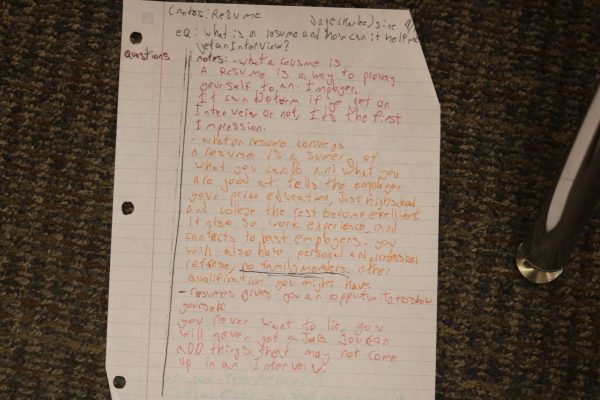 Cnotes: Resume
EQ: what is a resume and how can it help me
get an Interview?
Questions
notes: - what a reusme is
A Resume is a way to provay
yourself to an Imployer.
It can Determ if ge get an
Interveiw or not, It's the first
Impression.
- what a resume conveys
a resume is a sumery of
what you can do and what you
are good at tells the employer
your prior education, Just highschool
and college the rest become
it also so work experience, and
contects to past employers, you
will also have personal and professional
refrese, no family members, other
qualification you might have
- resumes gives you an opportunity to show
yourself
you never want to lie, you
will never get a Job, you can
ADD things that may not come
up in an Interveiw.